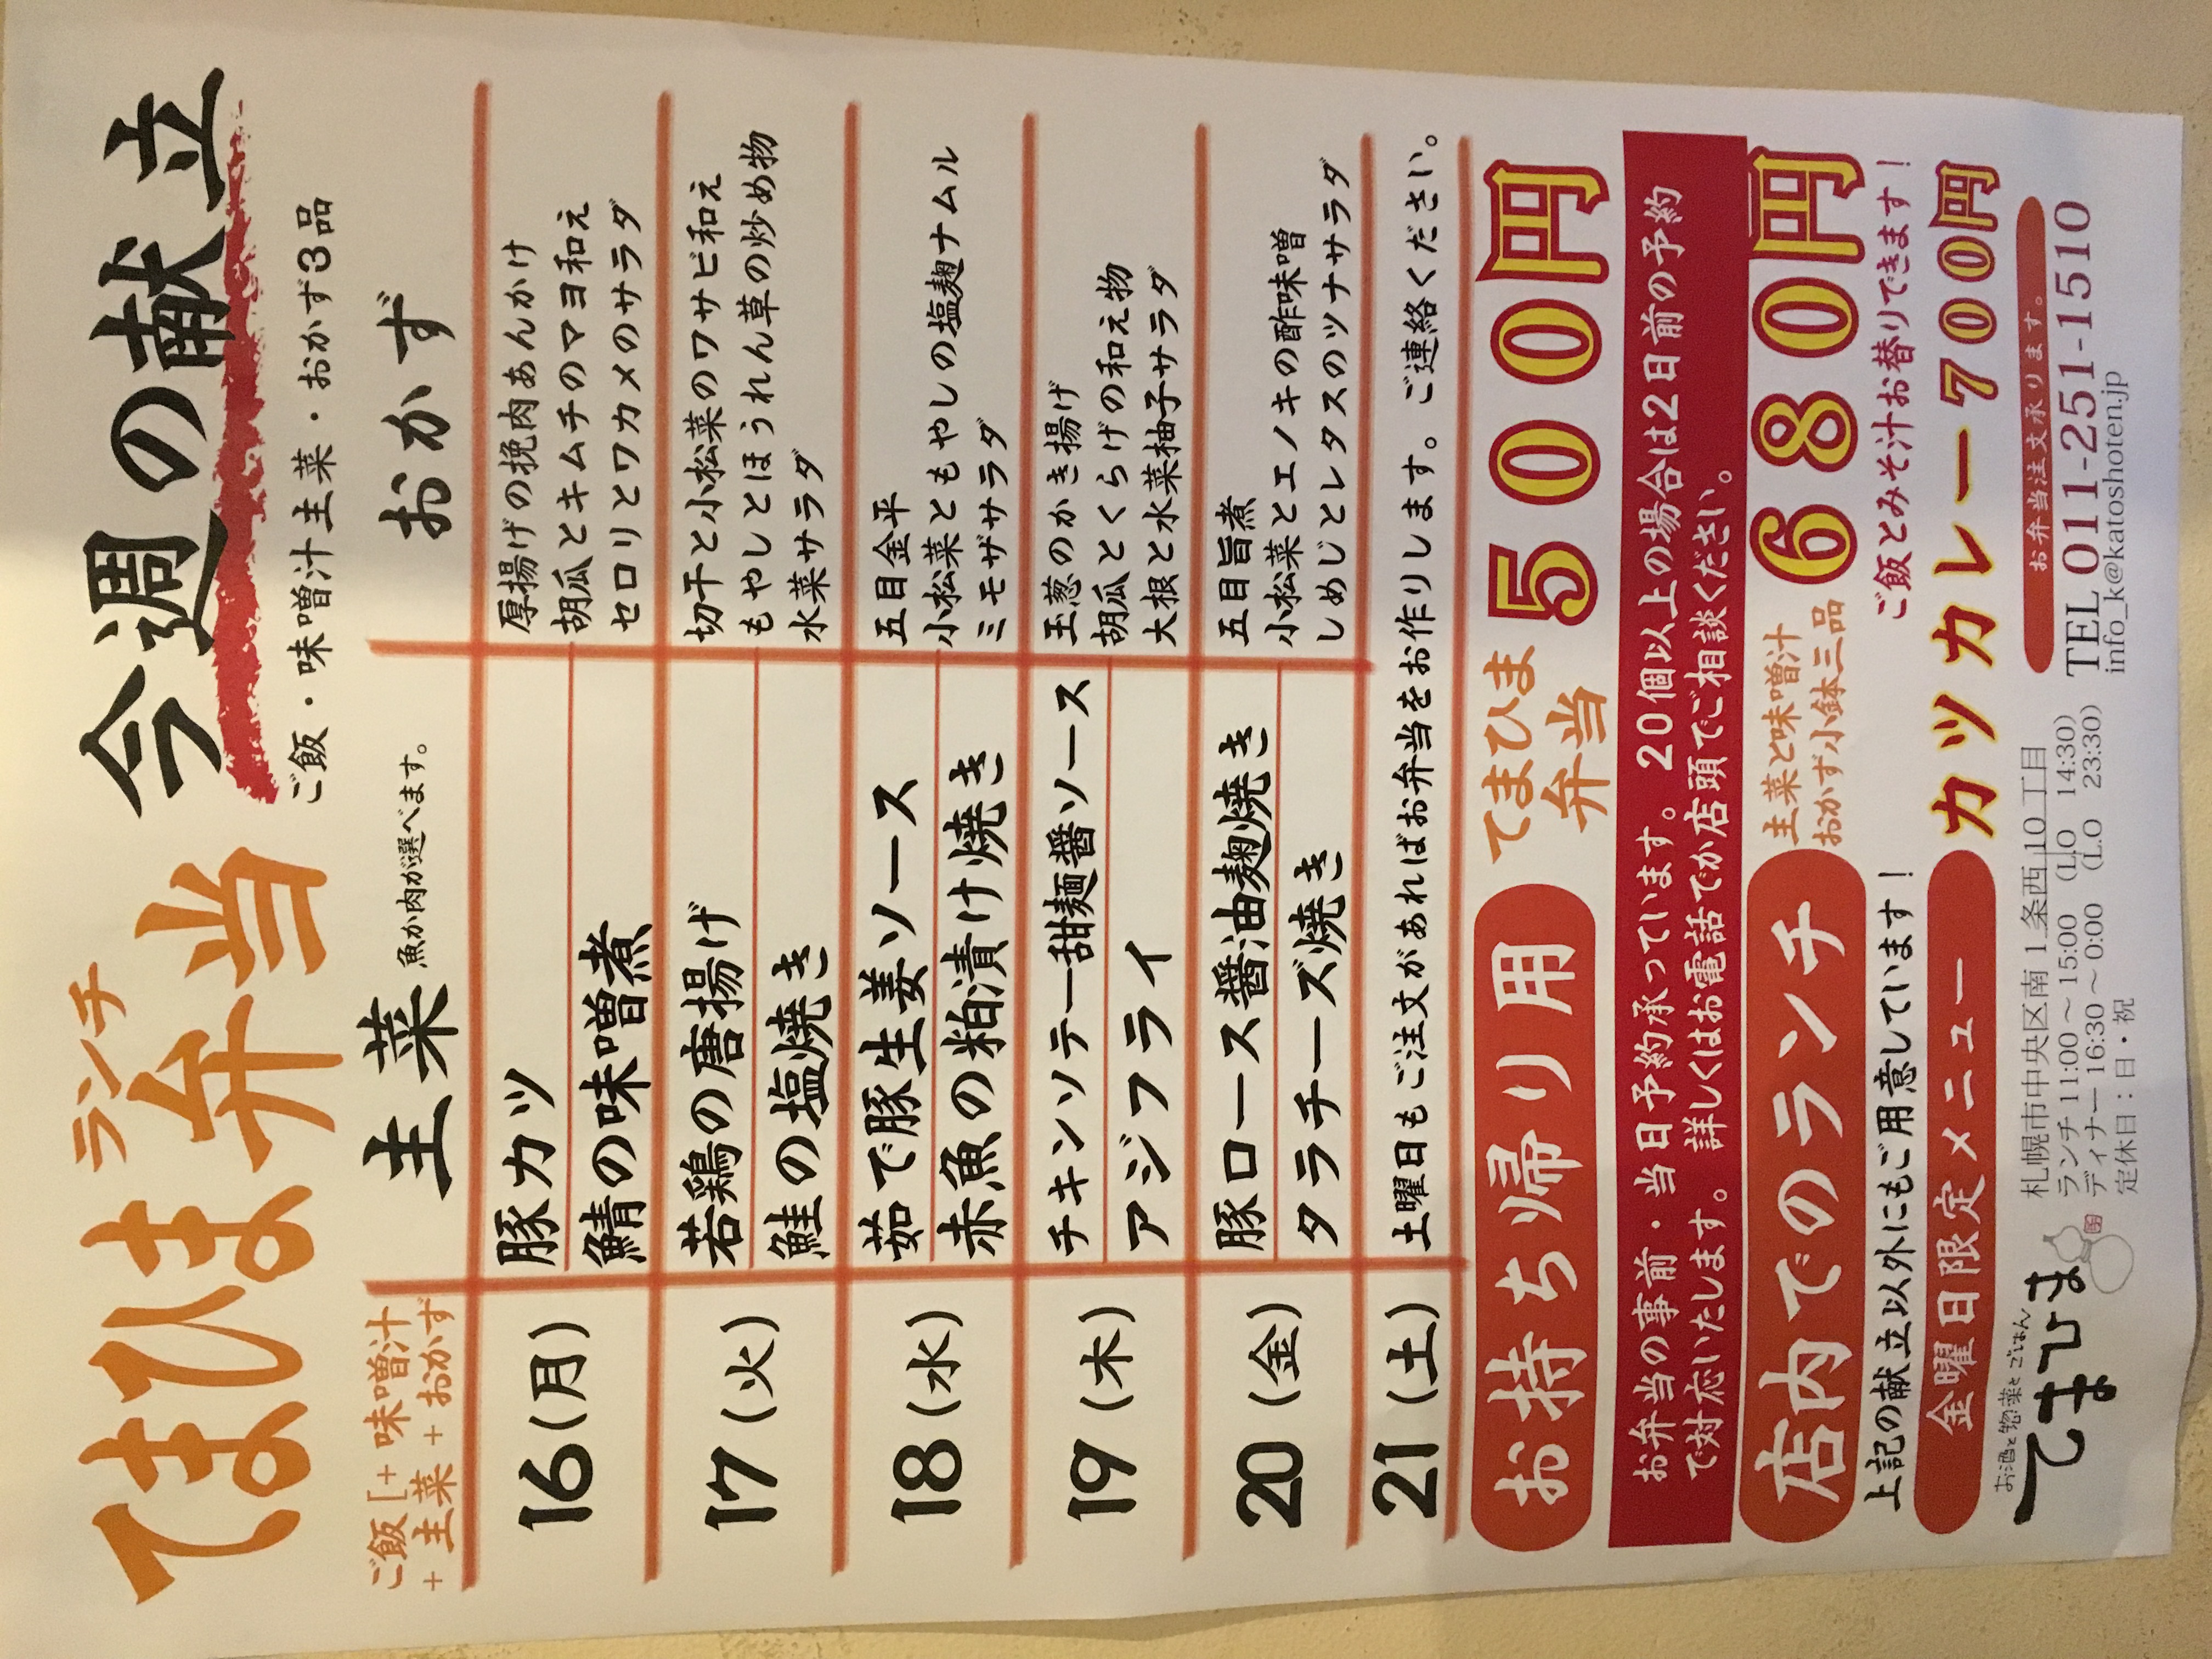 ランチ
てまひま弁当 今週の献立
ご飯・味噌汁主菜・おかず3品
ご飯[+味噌汁
+主菜+おかず
主菜 魚か肉が選べます。
おかず
16(月)
豚カツ
鯖の味噌煮
厚揚げの挽肉あんかけ
胡瓜とキムチのマヨ和え
セロリとワカメのサラダ
17(火)
若鶏の唐揚げ
鮭の塩焼き
切干と小松菜のワサビ和え
もやしとほうれん草の炒め物
水菜サラダ
18(水)
茹で豚生姜ソース
赤魚の粕漬け焼き
五目金平
小松菜ともやしの塩麹ナムル
ミモザサラダ
19(木)
チキンソテー甜麺醤ソース
アジフライ
玉葱のかき揚げ
胡瓜とくらげの和え物
大根と水菜柚子サラダ
20(金)
豚ロース醤油麹焼き
タラチーズ焼き
五目旨煮
小松菜とエノキの酢味噌
しめじとレタスのツナサラダ
21(土)
土曜日もご注文があればお弁当をお作りします。ご連絡ください。
お持ち帰り用
てまひま
弁当
500円
お弁当の事前・当日予約承っています。20個以上の場合は2日前の予約
で対応いたします。詳しくはお電話でか店頭でご相談ください。
店内でのランチ
主菜と味噌汁
おかず小鉢三品
680円
上記の献立以外にもご用意しています!
ご飯とみそ汁お替りできます!
金曜日限定メニュー
カツカレー700円
お酒と惣菜とごはん
てまひま
札幌市中央区南1条西10丁目
ランチ 11:00～15:00 (LO 14:30)
ディナー 16:30～0:00 (LO 23:30)
定休日:日・祝
お弁当注文承ります。
TEL 011-251-1510
info_k@katoshoten.jp